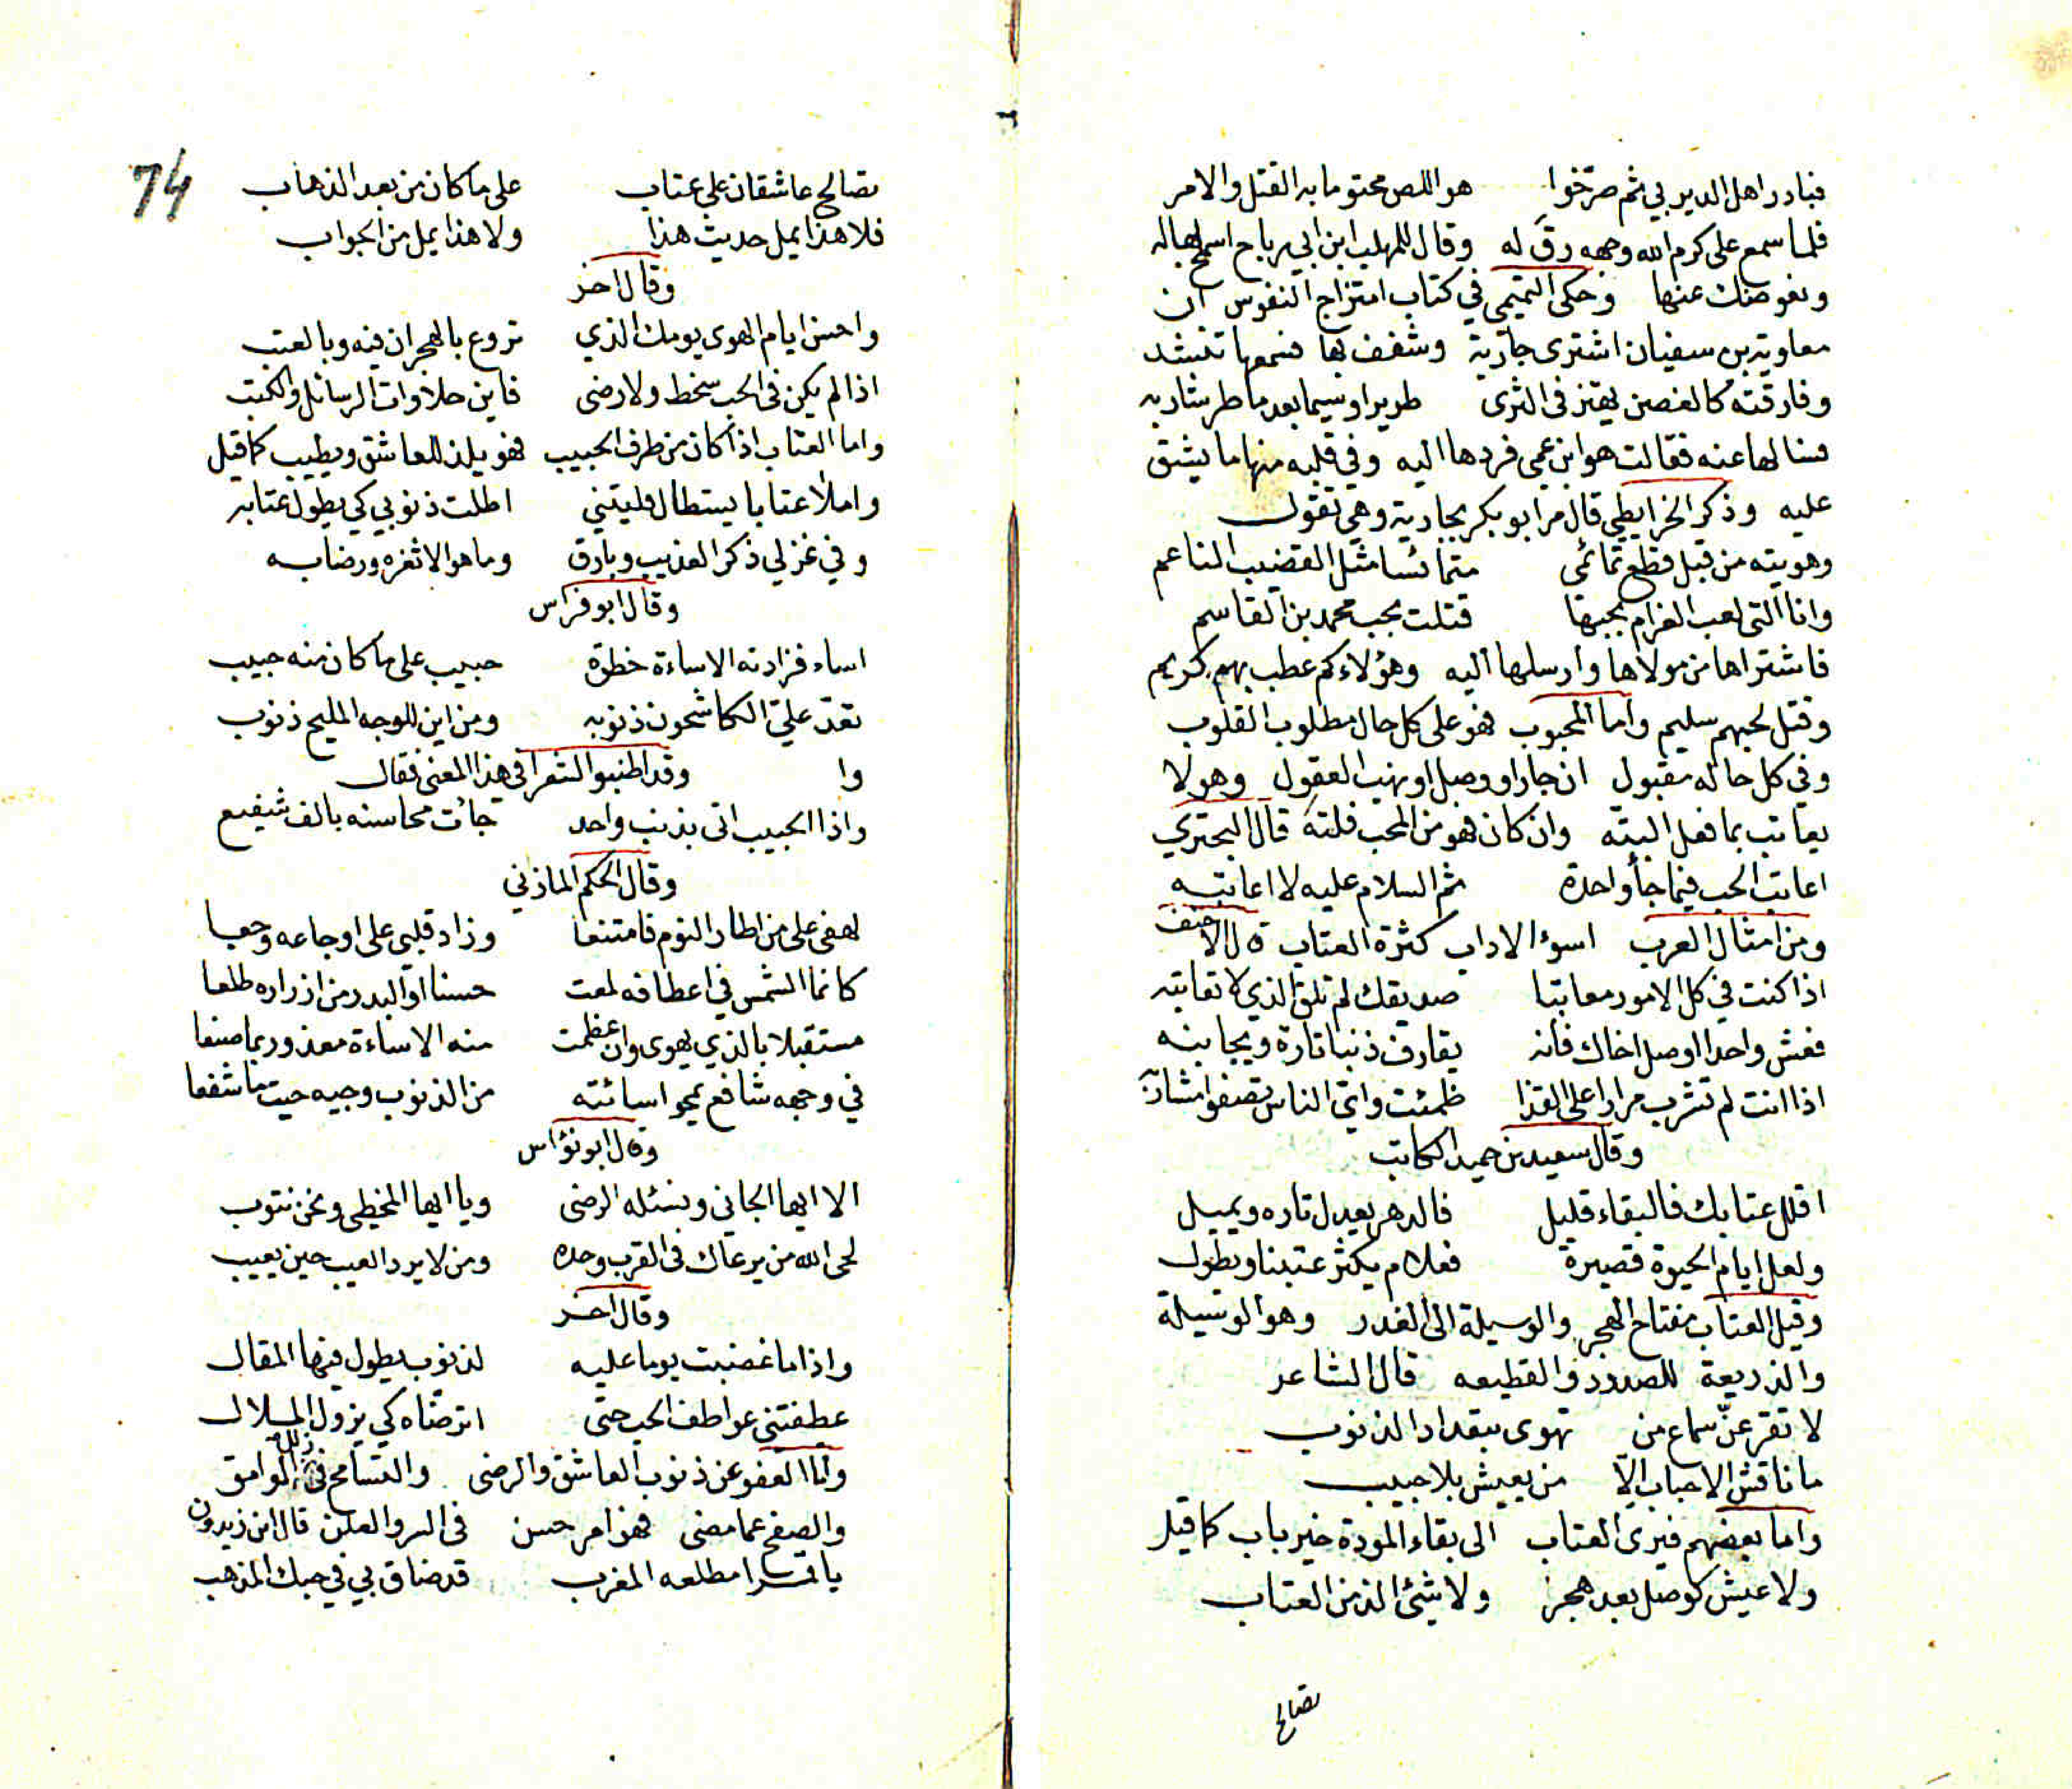 فبادر اهل الدير بي ثم صرخوا هو اللص محتوما به القتل والامر
فلما سمع على كرم الله وجهه رق له وقال للمهلب ابن ابي رباح اسمح بها له
ونعوضك عنها وحكى التميمي في كتاب امتزاج النفوس ان
معاوية بن سفيان اشترى جارية وشغف بها فسمعها تنشد
وفارقته كالغصن يهتز في الثرى طريرا وسيما بعد ما طر شاربه
فسالها عنه فقالت هو ابن عمي فردها اليه وفي قلبه منها ما يشق
عليه وذكر الخرايطي قال مر ابو بكر بجارية وهي تقول
وهويته من قبل قطع تمائمى متمائسا مثل القضيب الناعم
وانا التي لعب الغرام بجبها قتلت بحب محمد بن القاسم
فاشتراها من مولاها وارسلها اليه وهؤلاء كم عطب بهم كريم
وقتل لحبهم سليم واما المحبوب فهو على كل حال مطلوب القلوب
وفي كل حاله مقبول ان جار او وصل او نهب العقول وهو لا
يعاتب بما فعل البته وان كان فهو من المحب فلتة قال البحتري
اعاتب الحب فيما جأ واحدة ثم السلام عليه لا اعاتبه
ومن امثال العرب اسوء الاداب كثرة العتاب قال الاحنف
اذا كنت في كل الامور معاتبا صديقك لم تلق الذي لا تعاتبه
فعش واحدا او صل اخاك فانه يقارف ذنبا تارة ويجانبه
اذا انت لم تشرب مرارا على القذا ظمئت واي الناس تصفو مشاربه
وقال سعيد بن حميد الكاتب
اقلل عتابك فالبقاء قليل فالدهر يعدل تاره ويميل
ولعل ايام الحيوة قصيرة فعلام يكثر عتبنا ويطول
وقيل العتاب مفتاح الهجر والوسيلة الى الغدر وهو الوسيلة
والذريعة للصدود والقطيعه قال الشاعر
لا تقرعن سماع من تهوى بتعداد الذنوب
ما ناقش الاحباب الّا من يعيش بلا حبيب
واما بعضهم فيرى العتاب الى بقاء المودة خير باب كما قيل
ولا عيش كوصل بعد هجر ولا شيئ الذ من العتاب
تصالح
74
تصالح عاشقان على عتاب على ما كان من بعد الذهاب
فلا هذا يمل حديث هذا ولا هذا يمل من الجواب
وقال اخر
واحسن ايام الهوى يومك الذي تروع بالهجران فيه وبالعتب
اذا لم يكن في الحب سخط ولا رضى فاين حلاوات الرسائل والكتب
واما العتاب اذا كان من طرف الحبيب فهو يلذ للعاشق ويطيب كما قيل
واملأ عتابا يستطال فليتني اطلت ذنوبي كي يطول عتابه
وفي غزلي ذكر العذيب وبارق وما هو الا ثغره ورضابه
وقال ابو فراس
اساء فزادته الاساءة خطرة حبيب على ما كان منه حبيب
تعد علي الكاشحون ذنوبه ومن اين للوجه المليح ذنوب
وا وقد اطنبوا الشعرا في هذا المعنى فقال
واذا الحبيب اتى بذنب واحد جائت محاسنه بالف شفيع
وقال الحكم المازني
لهفى على من اطار النوم فامتنعا وزاد قلبى على اوجاعه وجعا
كانما الشمس في اعطافه لمعت حسنا او البدر من ازراره طلعا
مستقبلا بالذي يهوى وان عظمت منه الاساءة معذور بما صنعا
في وجهه شافع يمحو اسائته من الذنوب وجيه حيث ما شفعا
وقال ابو نؤاس
الا ايها الجاني ونسئله الرضى ويا ايها المخطى ونحن نتوب
لحى الله من يرعاك في القرب وحده ومن لا يرد العيب حين يعيب
وقال اخر
واذا ما غضبت يوما عليه لذنوب يطول فيها المقال
عطفتني عواطف الحب حتى اترضاه كي يزول الملال
واما العفو عن ذنوب العاشق والرضى والتسامح في زلل الوامق
والصفح عما مضى فهو امر حسن في السر والعلن قال ابن زيدون
يا قمرا مطلعه المغرب قد ضاق بي في حبك المذهب